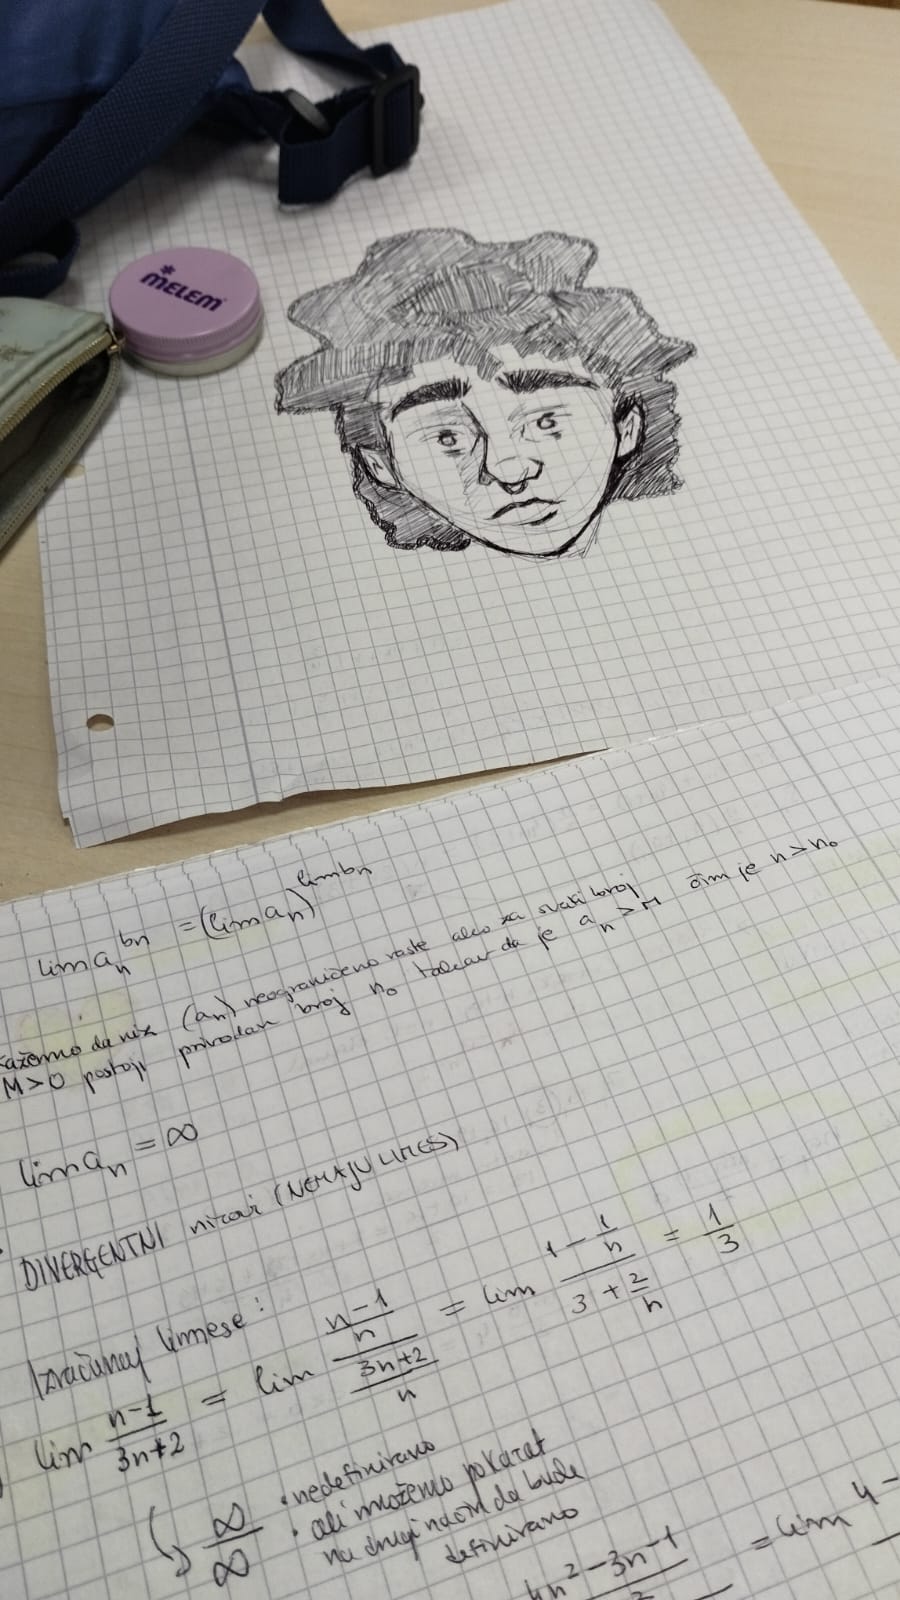 MELEM
lim aₙ^bₙ = (lim aₙ)^lim bₙ
Kažemo da niz (aₙ) neograničeno raste ako za svaki broj
M>0 postoji prirodan broj n₀ takav da je aₙ > M čim je n>n₀
lim aₙ = ∞
DIVERGENTNI nizovi (NEMAJU LIMES)
Izračunaj limese:
lim (n-1)/(3n+2) = lim ((n-1)/n)/((3n+2)/n) = lim (1-1/n)/(3+2/n) = 1/3
∞/∞ · nedefinirano
· ali možemo pokazat
na drugi način da bude
definirano
4n²-3n-1 = lim 4-